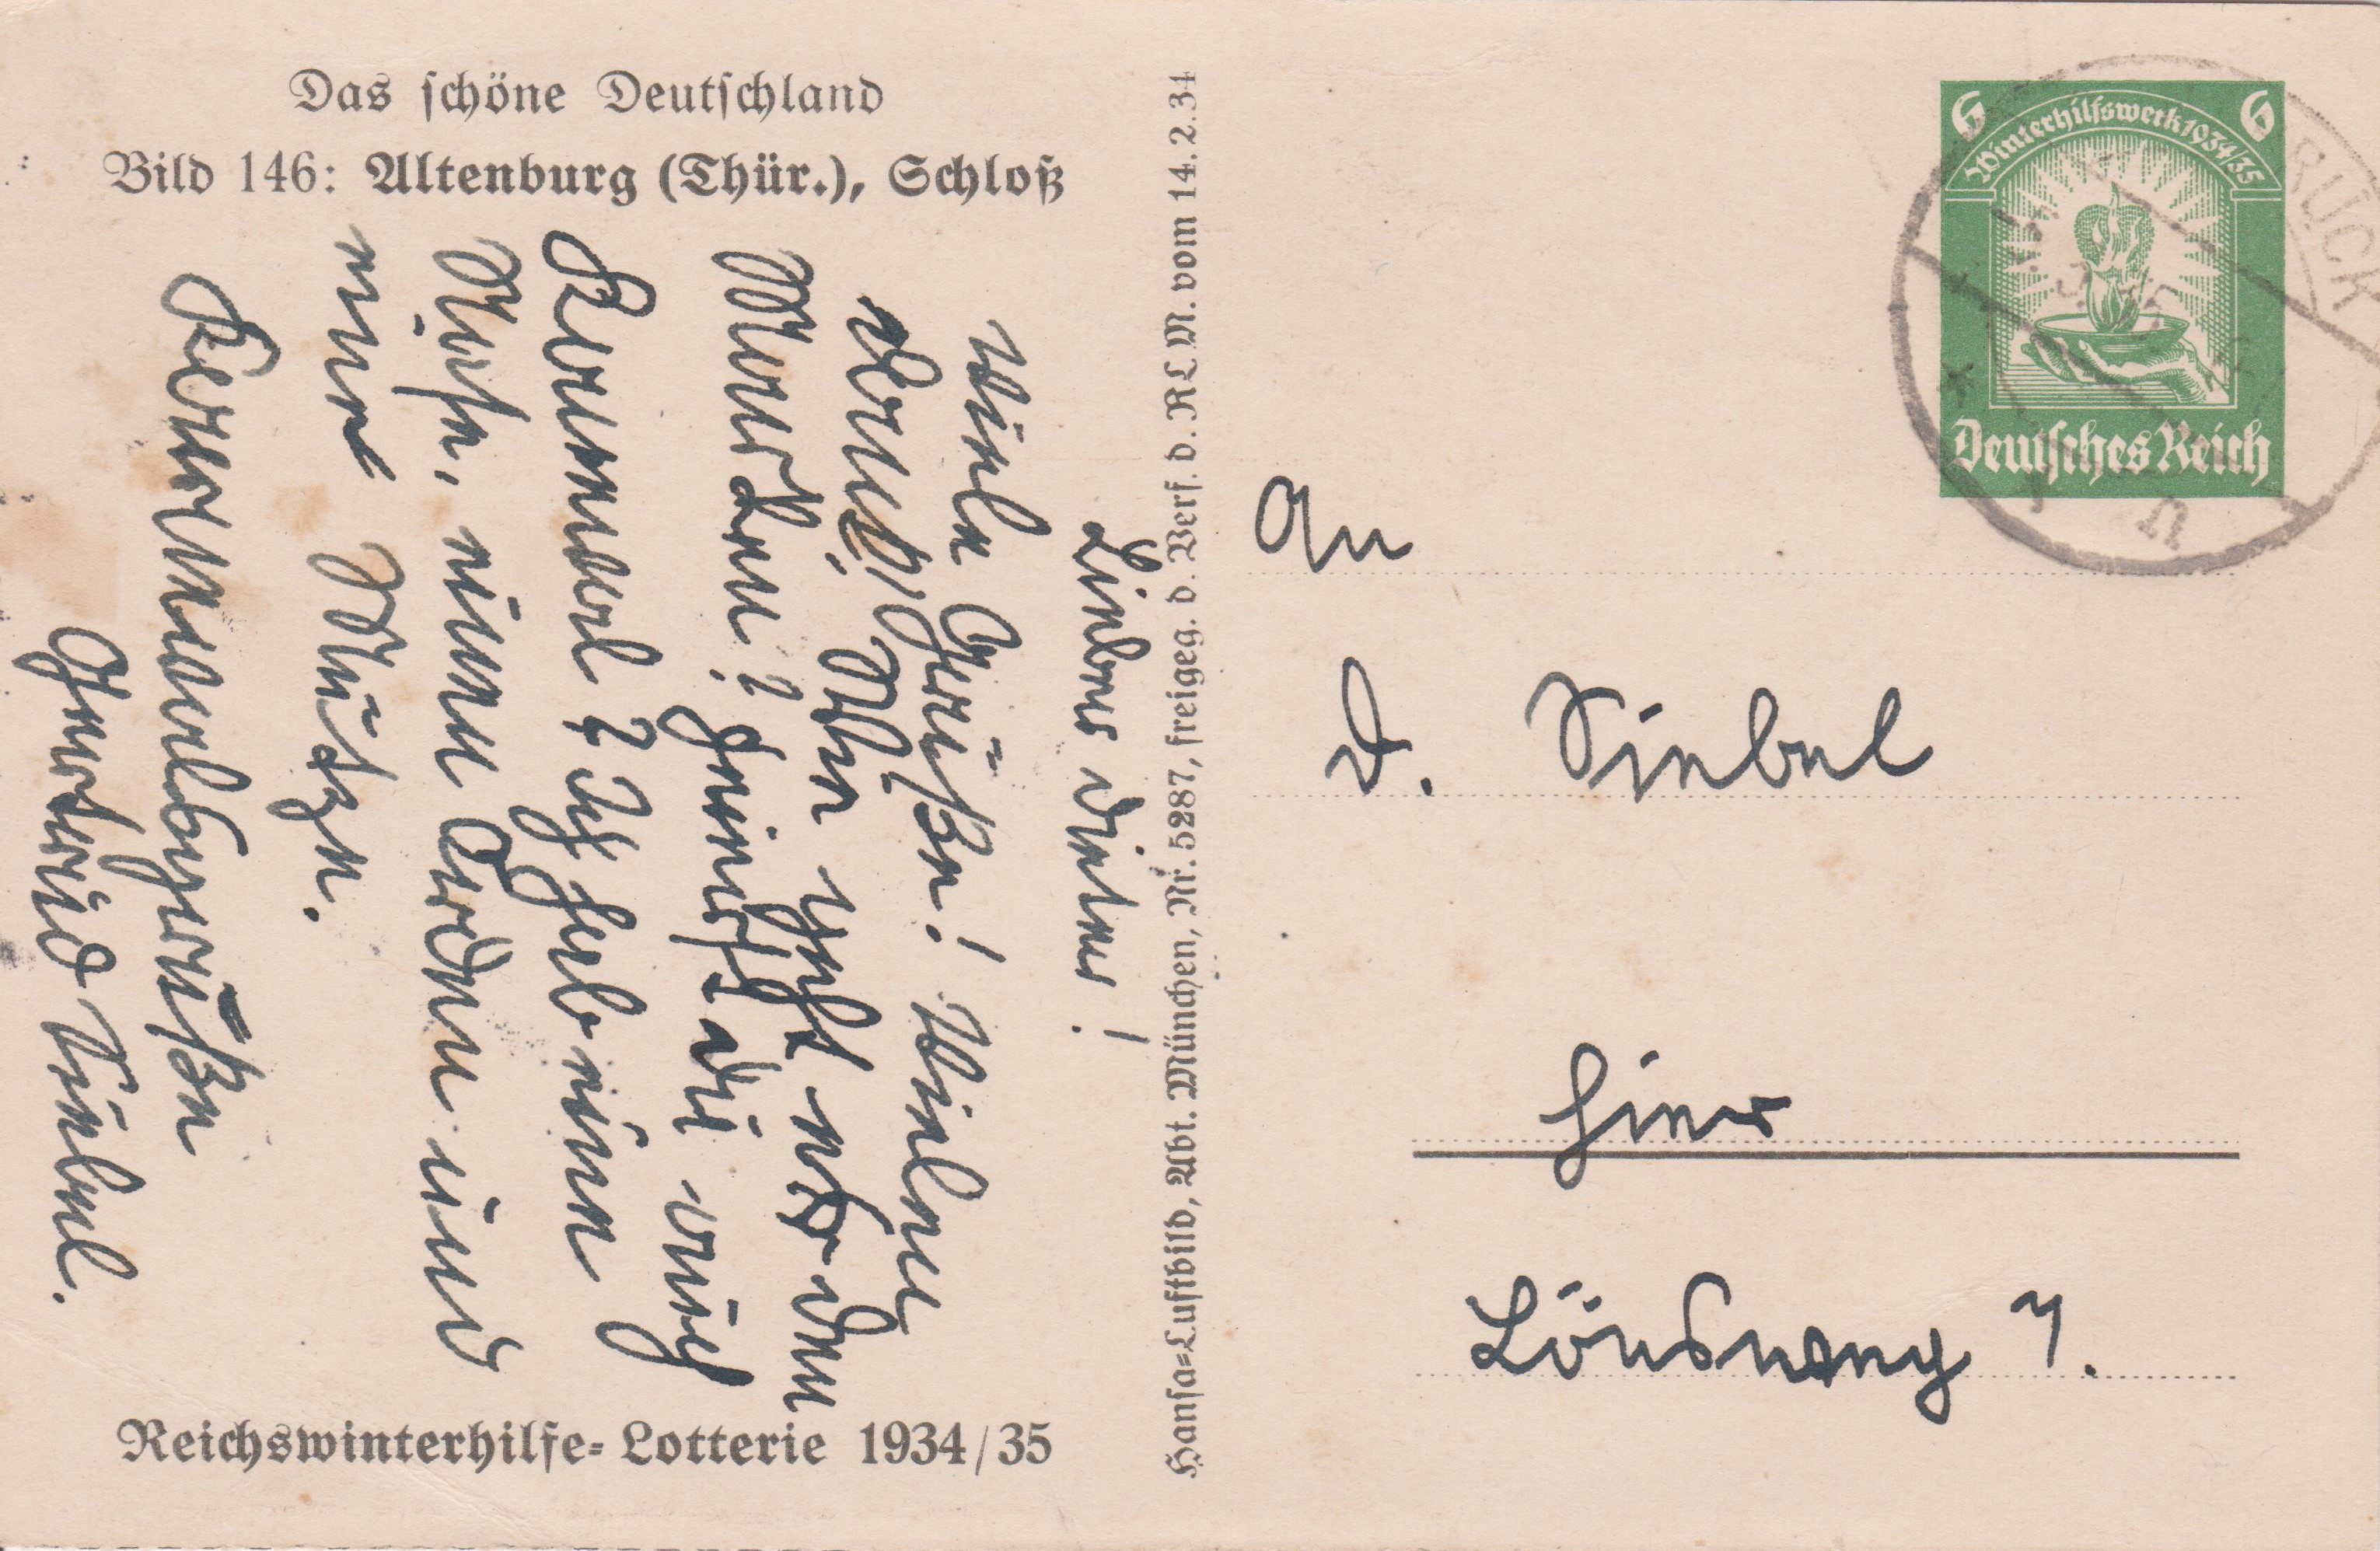 Das schöne Deutschland
Bild 146: Altenburg (Thür.), Schloß
Lieber Dieter!
Viele Grüße! Vielen
Dank! Wie geht den
Feierst du auch
Karneval? Ich habe eine
Nase, einen Orden und
eine Mütze.
Karnevalsgrüße
Gertrud Siebel.
Reichswinterhilfe-Lotterie 1934/35
Hansa-Luftbild, Abt. München, Nr. 5287, freigeg. d. Verf. d. RLM. vom 14.2.34
6 Winterhilfswerk 1934/35 6
Deutsches Reich
RÜCK
An
D. Siebel
Hier
Lönsweg 7.